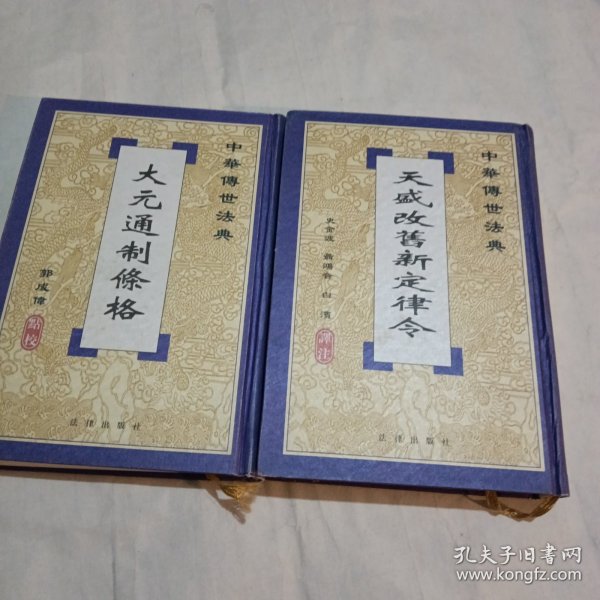 中華傳世法典
大元通制條格
郭成偉
點校
法律出版社
中華傳世法典
天盛改舊新定律令
史金波 聶鴻音 白濱
譯注
法律出版社
孔夫子旧书网
www.kongfz.com